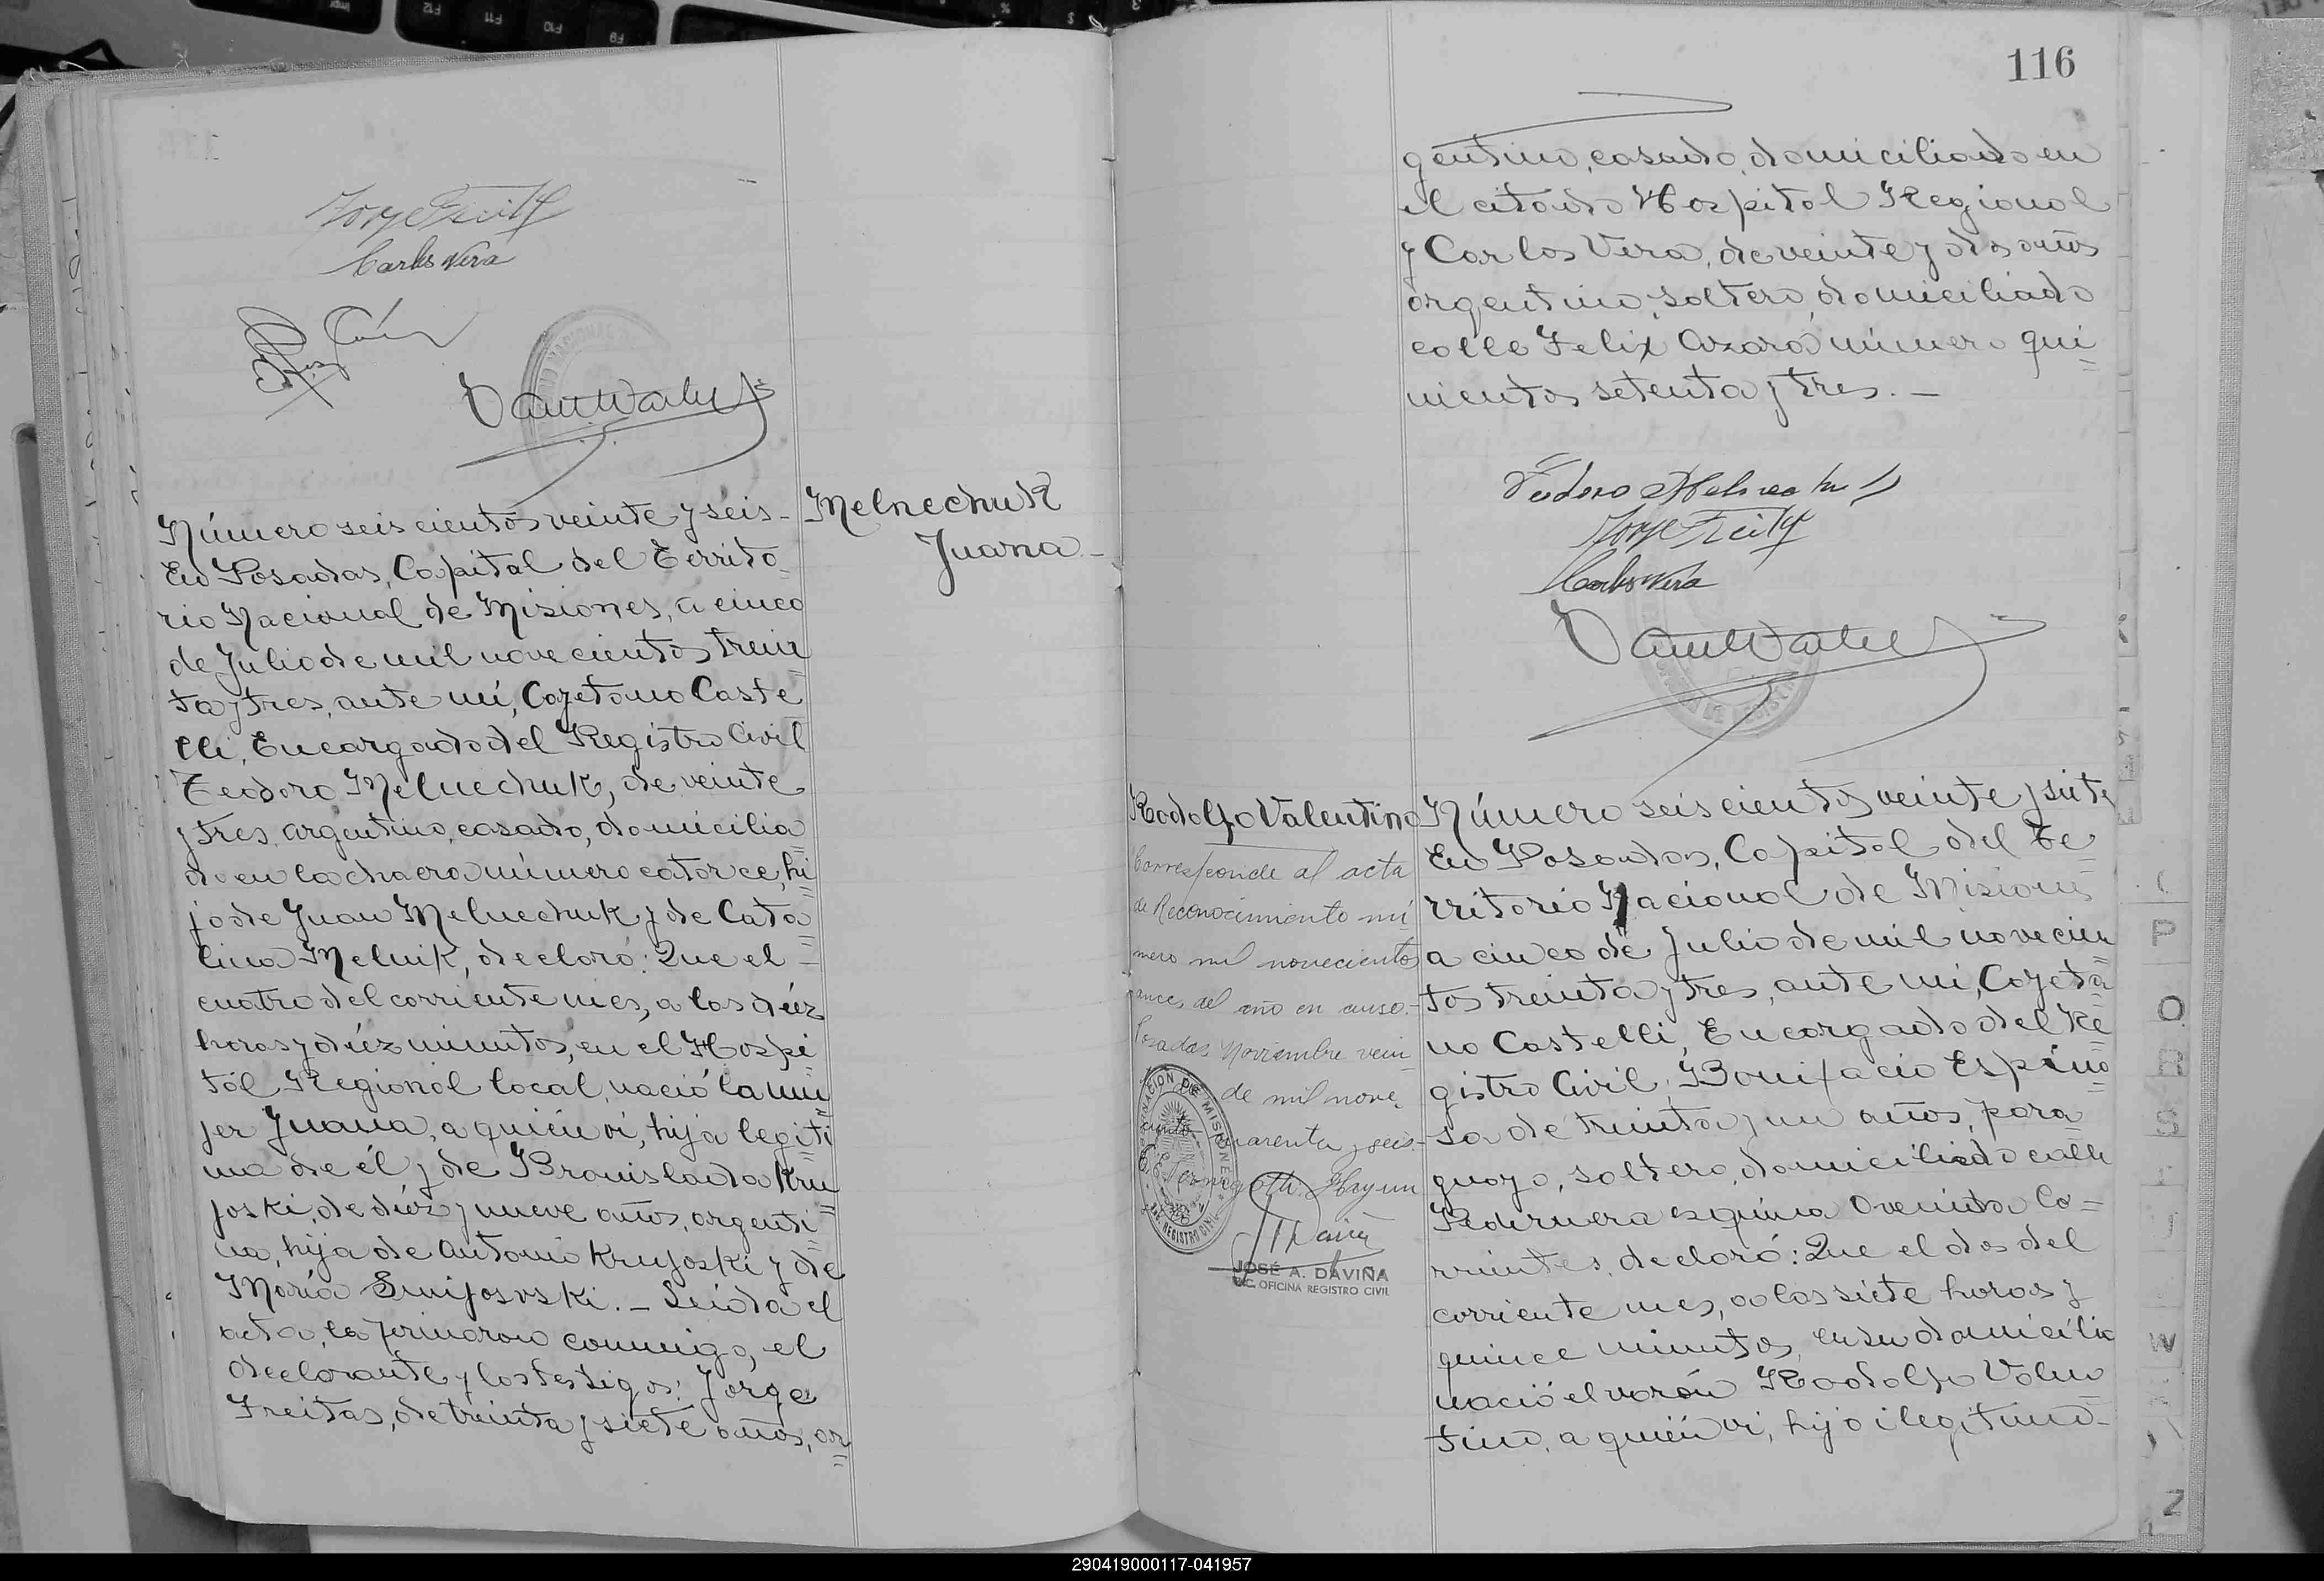 Jorge Freitas
Carlos Vera
Número seis cientos veinte y seis-
En Posadas, Capital del Territo=
rio Nacional de Misiones, a cinco
de Julio de mil novecientos trein=
ta y tres, ante mí, Cayetano Caste=
lli, Encargado del Registro Civil
Teodoro Melnechuk, de veinte
y tres, argentino, casado, domicilia=
do en la chacra número catorce, hi=
jo de Juan Melnechuk y de Cata=
lina Melnik, declaró: Que el =
cuatro del corriente mes, a las diéz
horas y diéz minutos, en el Hospi=
tál Regionál local, nació la mu=
jer Juana, a quién ví, hija legíti=
ma de él y de Bronislada Kru=
joski, de diéz y nueve años, argenti=
na, hija de Antonio Krujoski y de
María .- Leída el
acta, la firmaron conmigo, el
declarante y los testigos: Jorge
Freitas, de treinta y siete años, ar=
Melnechuk
Juana-
116
gentino, casado, domiciliado en
el citado Hospital Regional
y Carlos Vera, de veinte y dos años
argentino, soltero, domiciliado
calle Felix Azara número qui=
nientos setenta y tres.-
Teodoro Melnechuk
Jorge Freitas
Carlos Vera
Rodolfo Valentino
Corresponde al acta
de Reconocimiento nú
mero mil novecientos
once, del año en curso.-
Posadas Noviembre vein
de mil nove,
cientos cuarenta y seis.-
JOSÉ A. DAVIÑA
ENC. OFICINA REGISTRO CIVIL
Número seis cientos veinte y siete
En Posadas, Capital del Te=
rritorio Nacional de Misiones
a cinco de Julio de mil novecien=
tos treinta y tres, ante mí, Cayeta=
no Castelli, Encargado del Re=
gistro Civil, Bonifacio Espíno=
sa de treinta y un años, para=
guayo, soltero, domiciliado calle
Pedernera esquina Avenida Co=
rrientes, declaró: Que el dos del
corriente mes, a las siéte horas y
quince minutos, en su domicílio
nació el varón Rodolfo Valen
tino, a quién ví, hijo ilegítimo-
P
O
R
S
U
W
Z
290419000117-041957